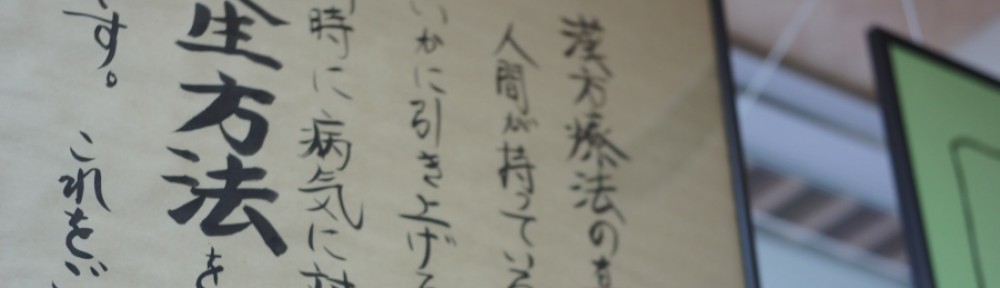 漢方療法の
人間が持っている
いかに引き上げる
時に病気に対
生方法を
す。これを